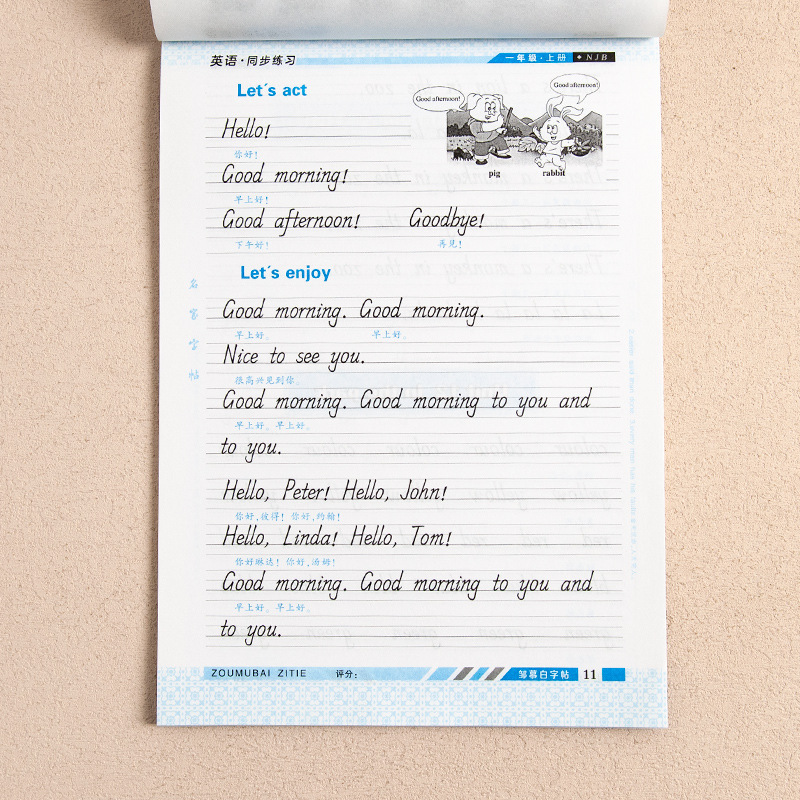 英语·同步练习
一年级·上册 ◆NJB
Let's act
Good afternoon!
Good afternoon!
pig rabbit
Hello!
你好!
Good morning!
早上好!
Good afternoon! Goodbye!
下午好! 再见!
Let's enjoy
Good morning. Good morning.
早上好。 早上好。
Nice to see you.
很高兴见到你。
Good morning. Good morning to you and
早上好。早上好。
to you.
Hello, Peter! Hello, John!
你好,彼得! 你好,约翰!
Hello, Linda! Hello, Tom!
你好琳达! 你好,汤姆!
Good morning. Good morning to you and
早上好。早上好。
to you.
名家字帖
ZOUMUBAI ZITIE 评分:
邹慕白字帖 11